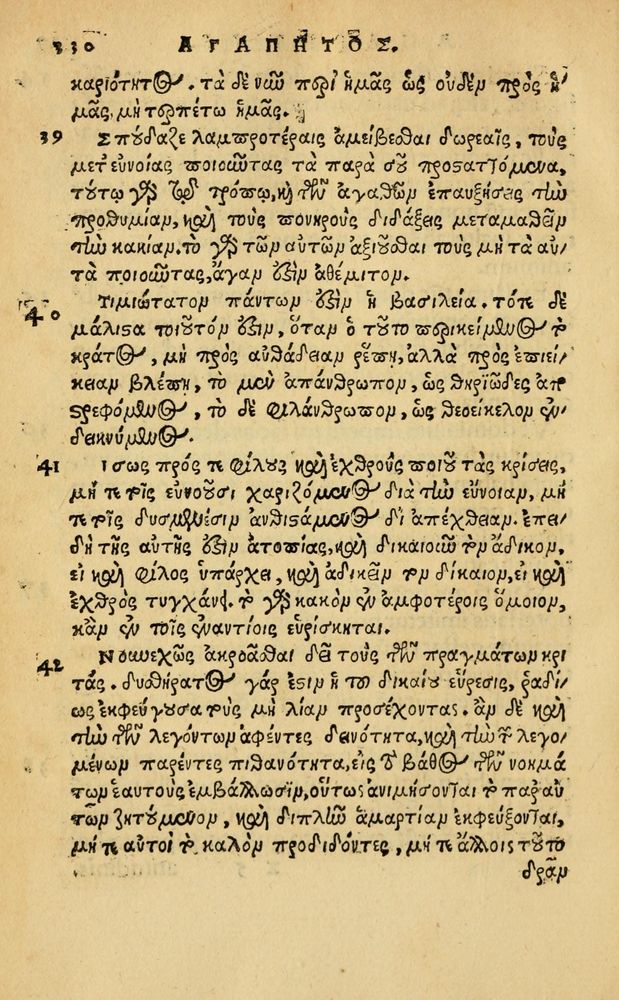 330 ΑΓΑΠΗΤΟΣ.
καριότητος. τὰ δὲ νῦν περὶ ἡμᾶς ὡς οὐδὲν πρὸς ἡ
μᾶς, μὴ τρπέτω ἡμᾶς.
39 Σπούδαζε λαμπροτέραις ἀμείβεσθαι δωρεαῖς, τοὺς
μετ' εὐνοίας ποιοῦντας τὰ παρὰ σοῦ προσαττόμενα,
τούτῳ γὰρ τῷ τρόπῳ, καὶ τῶν ἀγαθῶν ἐπαυξήσεις τὴν
προθυμίαν, καὶ τοὺς πονηροὺς διδάξεις μεταμαθεῖν
τὴν κακίαν. τὸ γὰρ τῶν αὐτῶν ἀξιοῦσθαι τοὺς μὴ τὰ αὐ-
τὰ ποιοῦντας, ἄγαν ἐστὶν ἀθέμιτον.
40 Τιμιώτατον πάντων ἐστὶν ἡ βασιλεία. τότε δὲ
μάλιστα τοιοῦτόν ἐστιν, ὅταν ὁ τοῦτο περικείμενος τὸ
κράτος, μὴ πρὸς αὐθάδειαν ῥέπῃ, ἀλλὰ πρὸς ἐπιεί-
κειαν βλέπῃ, τὸ μὲν ἀπάνθρωπον, ὡς θηριῶδες ἀπο
στρεφόμενος, τὸ δὲ φιλάνθρωπον, ὡς θεοείκελον ἐν-
δεικνύμενος.
41 Ισως πρός τε φίλους καὶ ἐχθροὺς ποιοῦ τὰς κρίσεις,
μήτε τοῖς εὐνοοῦσι χαριζόμενος διὰ τὴν εὔνοιαν, μή
τε τοῖς δυσμενέσιν ἀνθιστάμενος δι' ἀπέχθειαν. ἐπει-
δὴ τῆς αὐτῆς ἐστὶν ἀτοπίας, καὶ δικαιοῦν τὸν ἄδικον,
εἰ καὶ φίλος ὑπάρχει, καὶ ἀδικεῖν τὸν δίκαιον, εἰ καὶ
ἐχθρὸς τυγχάνει. τὸ γὰρ κακὸν ἐν ἀμφοτέροις ὅμοιον,
κἂν ἐν τοῖς ἐναντίοις εὑρίσκηται.
42 Νουνεχῶς ἀκροᾶσθαι δεῖ τοὺς τῶν πραγμάτων κρι
τάς. δυσθήρατος γάρ ἐστιν ἡ τοῦ δικαίου εὕρεσις, ῥαδί-
ως ἐκφεύγουσα τοὺς μὴ λίαν προσέχοντας. ἂν δὲ καὶ
τὴν τῶν λεγόντων ἀφέντες δεινότητα, καὶ τὴν τῶν λεγο-
μένων παρέντες πιθανότητα, εἰς τὸ βάθος τῶν νοημά
των ἑαυτοὺς ἐμβάλλωσιν, οὕτως ἀνιμήσονται τὸ παρ' αὐ
τῶν ζητούμενον, καὶ διπλῆν ἁμαρτίαν ἐκφεύξονται,
μήτε αὐτοὶ τὸ καλὸν προδιδόντες, μήτε ἄλλοις τοῦτο
δρᾶν